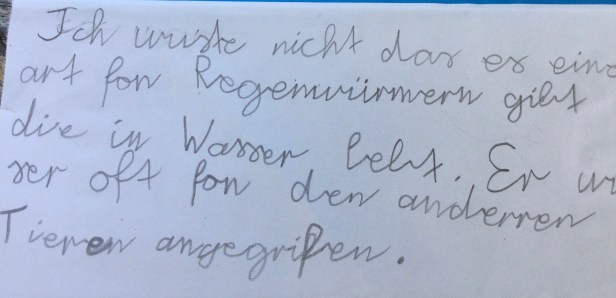 Ich wuste nicht das es eine
art fon Regenwürmern gibt
die in Wasser lebt. Er wi
ser oft fon den anderren
Tieren angegrifen.